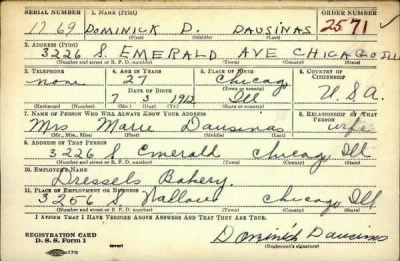 SERIAL NUMBER 1. NAME (Print) ORDER NUMBER
1769 DOMINICK D. DAUSINAS 2571
(First) (Middle) (Last)
2. ADDRESS (Print)
3226 S. EMERALD AVE CHICAGO ILL
(Number and street or R. F. D. number) (Town) (County) (State)
3. TELEPHONE 4. AGE IN YEARS 5. PLACE OF BIRTH 6. COUNTRY OF CITIZENSHIP
none 27 Chicago
(Town or county)
DATE OF BIRTH
7 3 1912 Ill U.S.A.
(Exchange) (Number) (Mo.) (Day) (Yr.) (State or country)
7. NAME OF PERSON WHO WILL ALWAYS KNOW YOUR ADDRESS 8. RELATIONSHIP OF THAT PERSON
Mrs Marie Dausinas wife
(Mr., Mrs., Miss) (First) (Middle) (Last)
9. ADDRESS OF THAT PERSON
3226 S. Emerald Chicago Ill
(Number and street or R. F. D. number) (Town) (County) (State)
10. EMPLOYER'S NAME
Dressels Bakery.
11. PLACE OF EMPLOYMENT OR BUSINESS
3256 S Wallace Chicago Ill
(Number and street or R. F. D. number) (Town) (County) (State)
I AFFIRM THAT I HAVE VERIFIED ABOVE ANSWERS AND THAT THEY ARE TRUE.
REGISTRATION CARD
D. S. S. Form 1 Dominick Dausinas
(Registrant's signature)